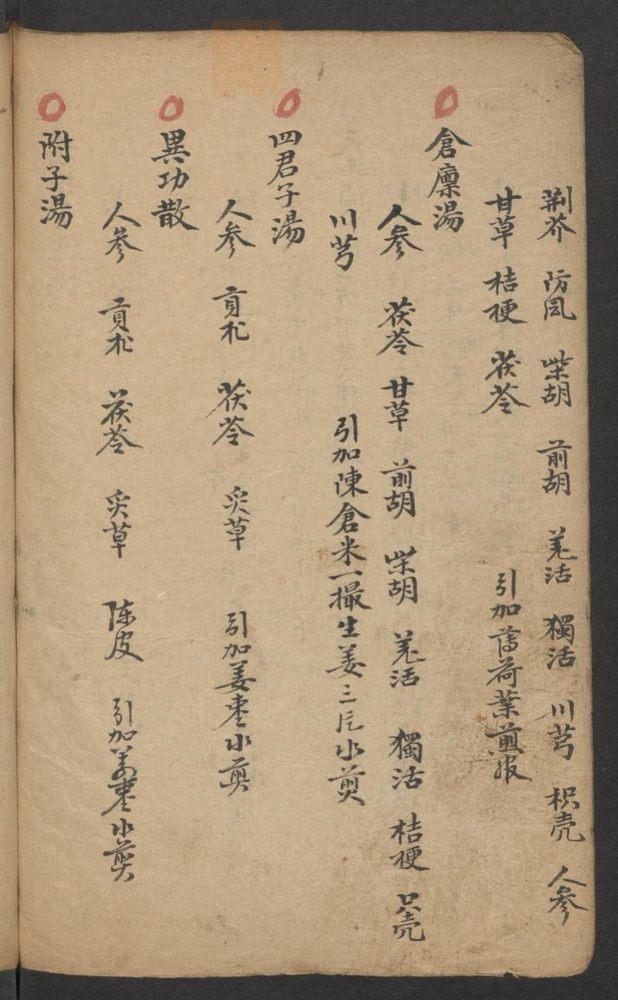 荆芥 防風 柴胡 前胡 羌活 獨活 川芎 枳壳 人参
甘草 桔梗 茯苓 引加薄荷葉煎服
倉廪湯
人参 茯苓 甘草 前胡 柴胡 羌活 獨活 桔梗 只壳
川芎 引加陳倉米一撮生姜三片水煎
四君子湯
人参 貢朮 茯苓 炙草 引加姜枣水煎
異功散
人参 貢朮 茯苓 炙草 陈皮 引加姜枣水煎
附子湯